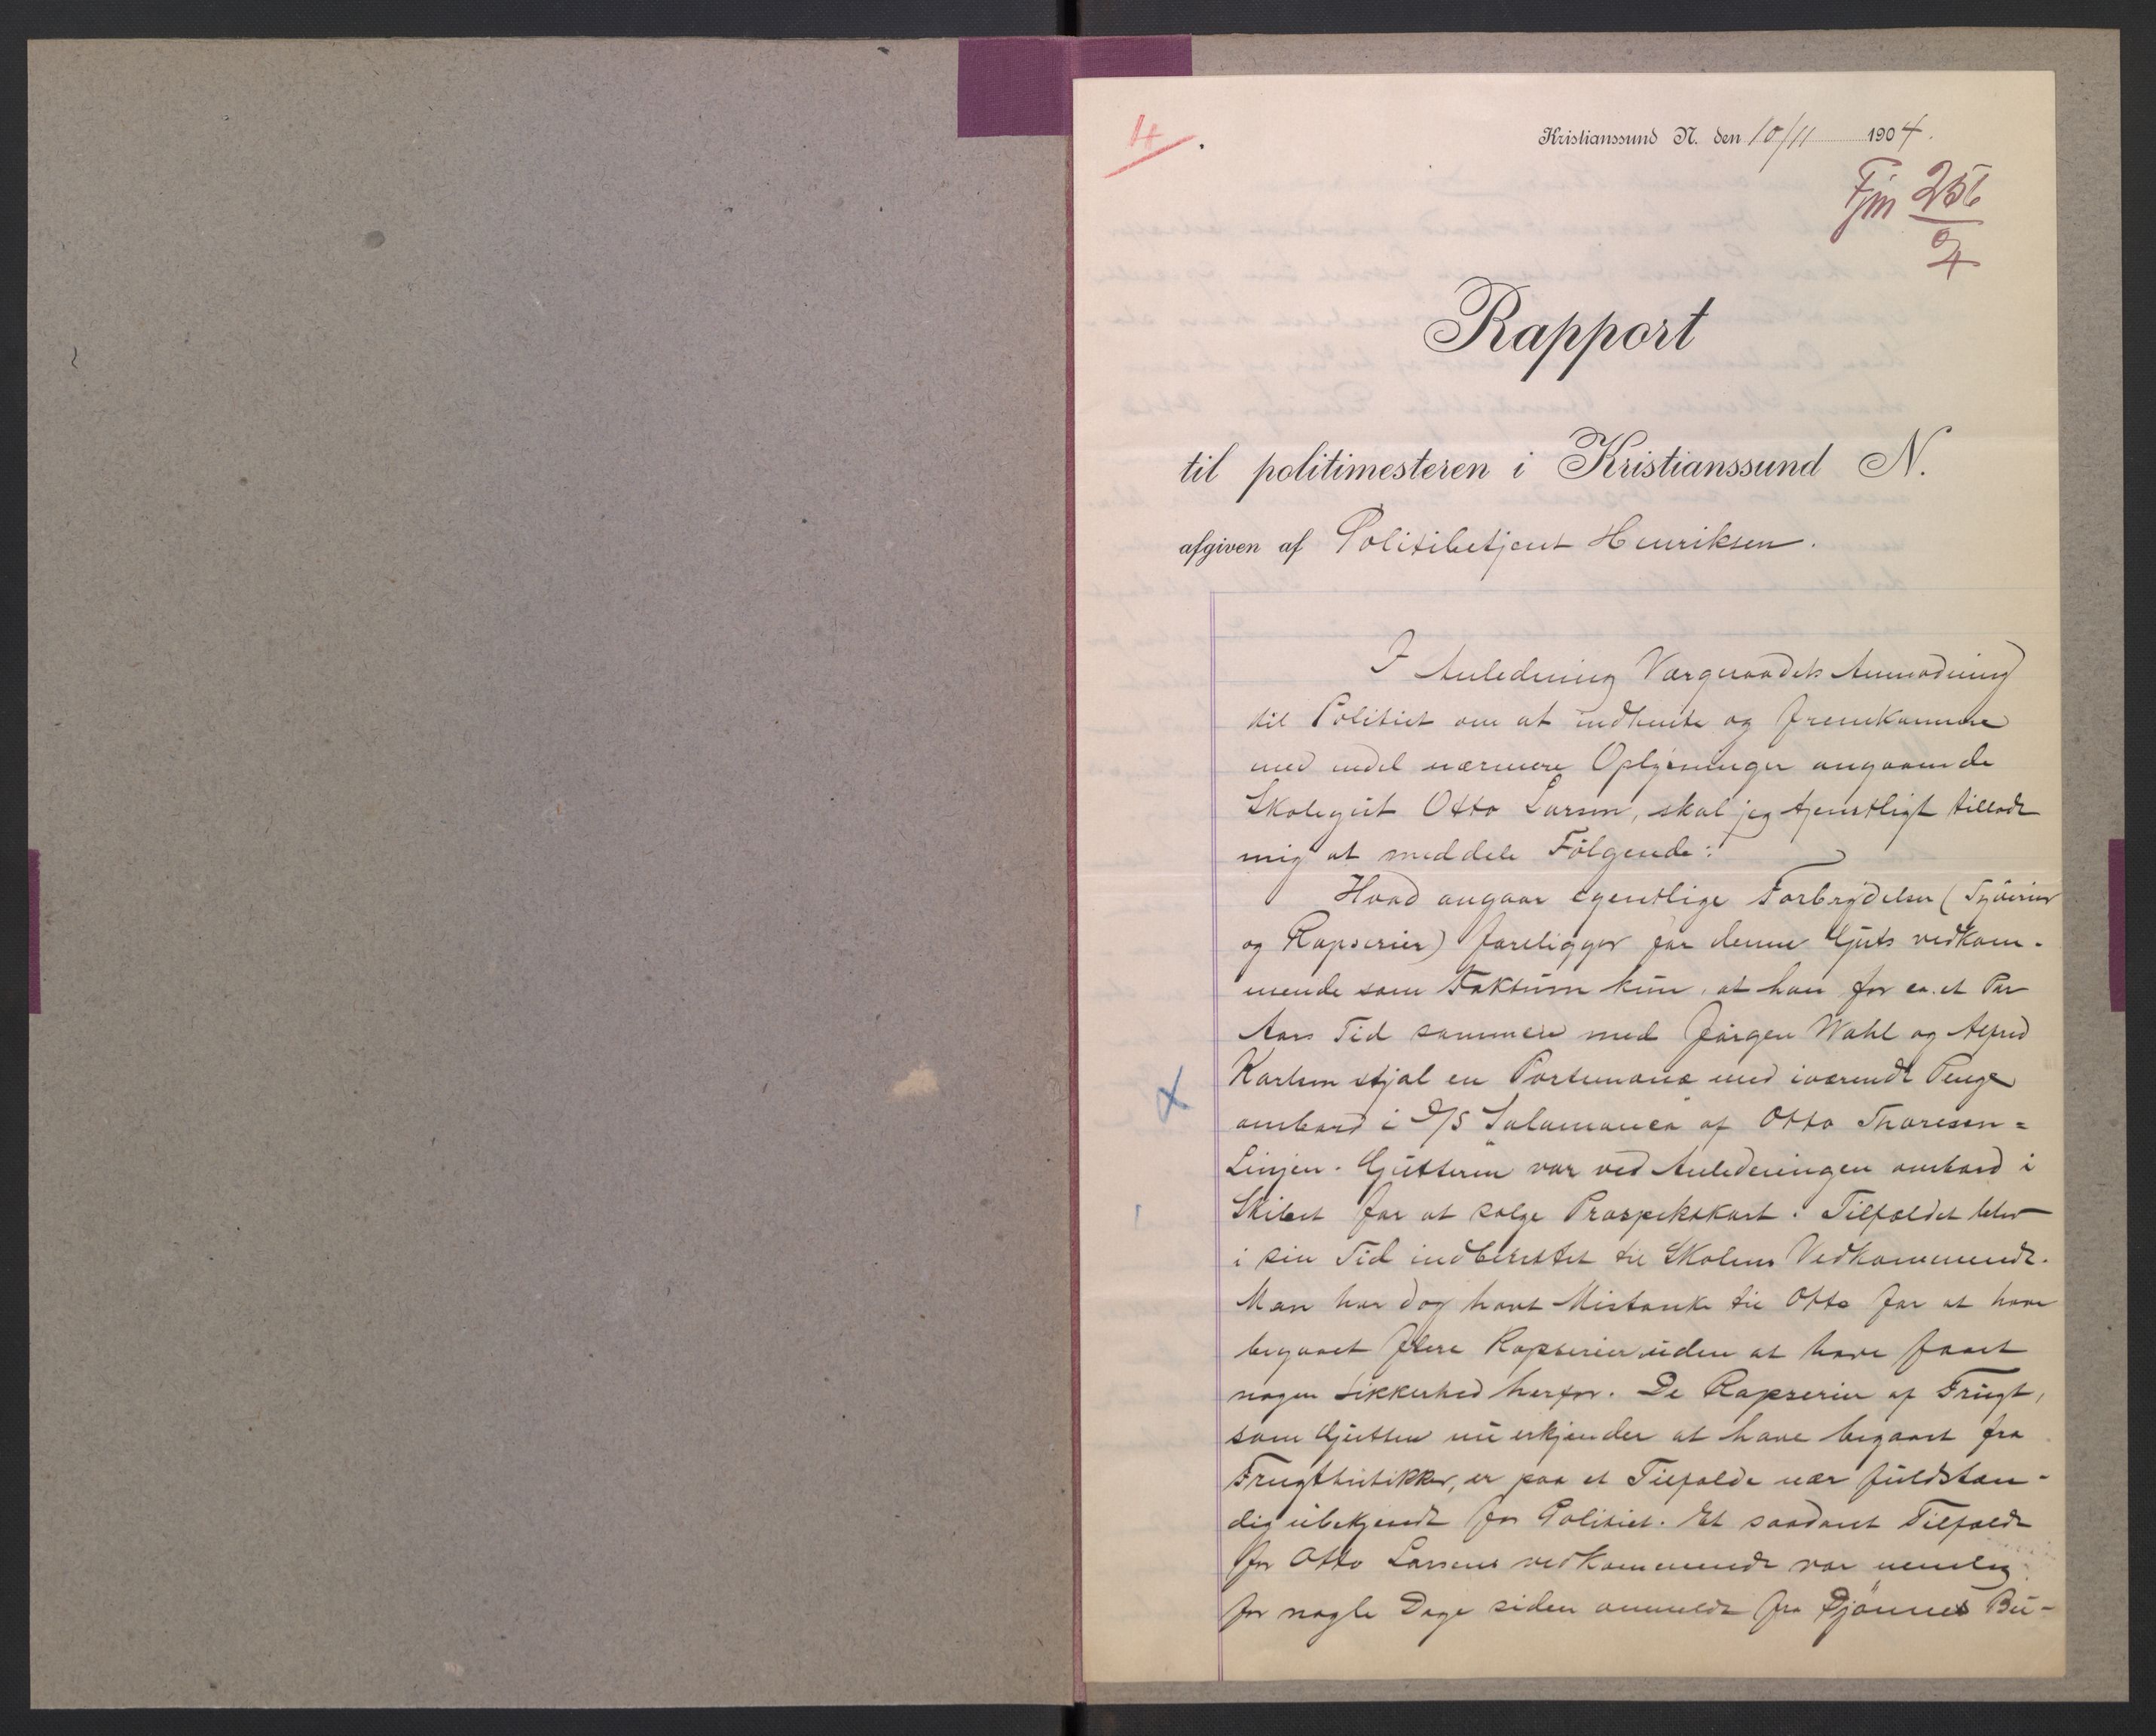 4.
Kristianssund N. den 10/11 1904.
Fjm 256/04
Rapport
til politimesteren i Kristianssund N.
afgiven af Politibetjent Henriksen.
I Anledning Værgeraadets Anmodning
til Politiet om at indhente og fremkomme
med endel nærmere Oplysninger angaaende
Skolegut Otto Larsen, skal jeg tjenstligt tillade
mig at meddele Følgende:
Hvad angaar egentlige Forbrydelser (Tyverier
og Rapserier) foreligger for denne Guts vedkom-
mende som Faktum kun, at han for ca. et Par
Aars Tid sammen med Jørgen Wahl og Alfred
Karlsen stjal en Portemonæ med iværende Penge
ombord i D/S Salamanca af Otto Thoresen=
Linjen. Gutterne var ved Anledningen ombord i
Skibet for at sælge Prospektkort. Tilfældet blev
i sin Tid indberettet til Skolens Vedkommende.
Man har dog havt Mistanke til Otto for at have
begaaet flere Rapserier uden at have faaet
nogen Sikkerhed herfor. De Rapserier af Frugt,
som Gutten nu erkjender at have begaaet fra
Frugtbutikker, er paa et Tilfælde nær fuldstæn-
dig ubekjendt for Politiet. Et saadant Tilfælde
for Otto Larsens vedkommende var nemlig
for nogle Dage siden anmeldt fra Bjørnes Bu-